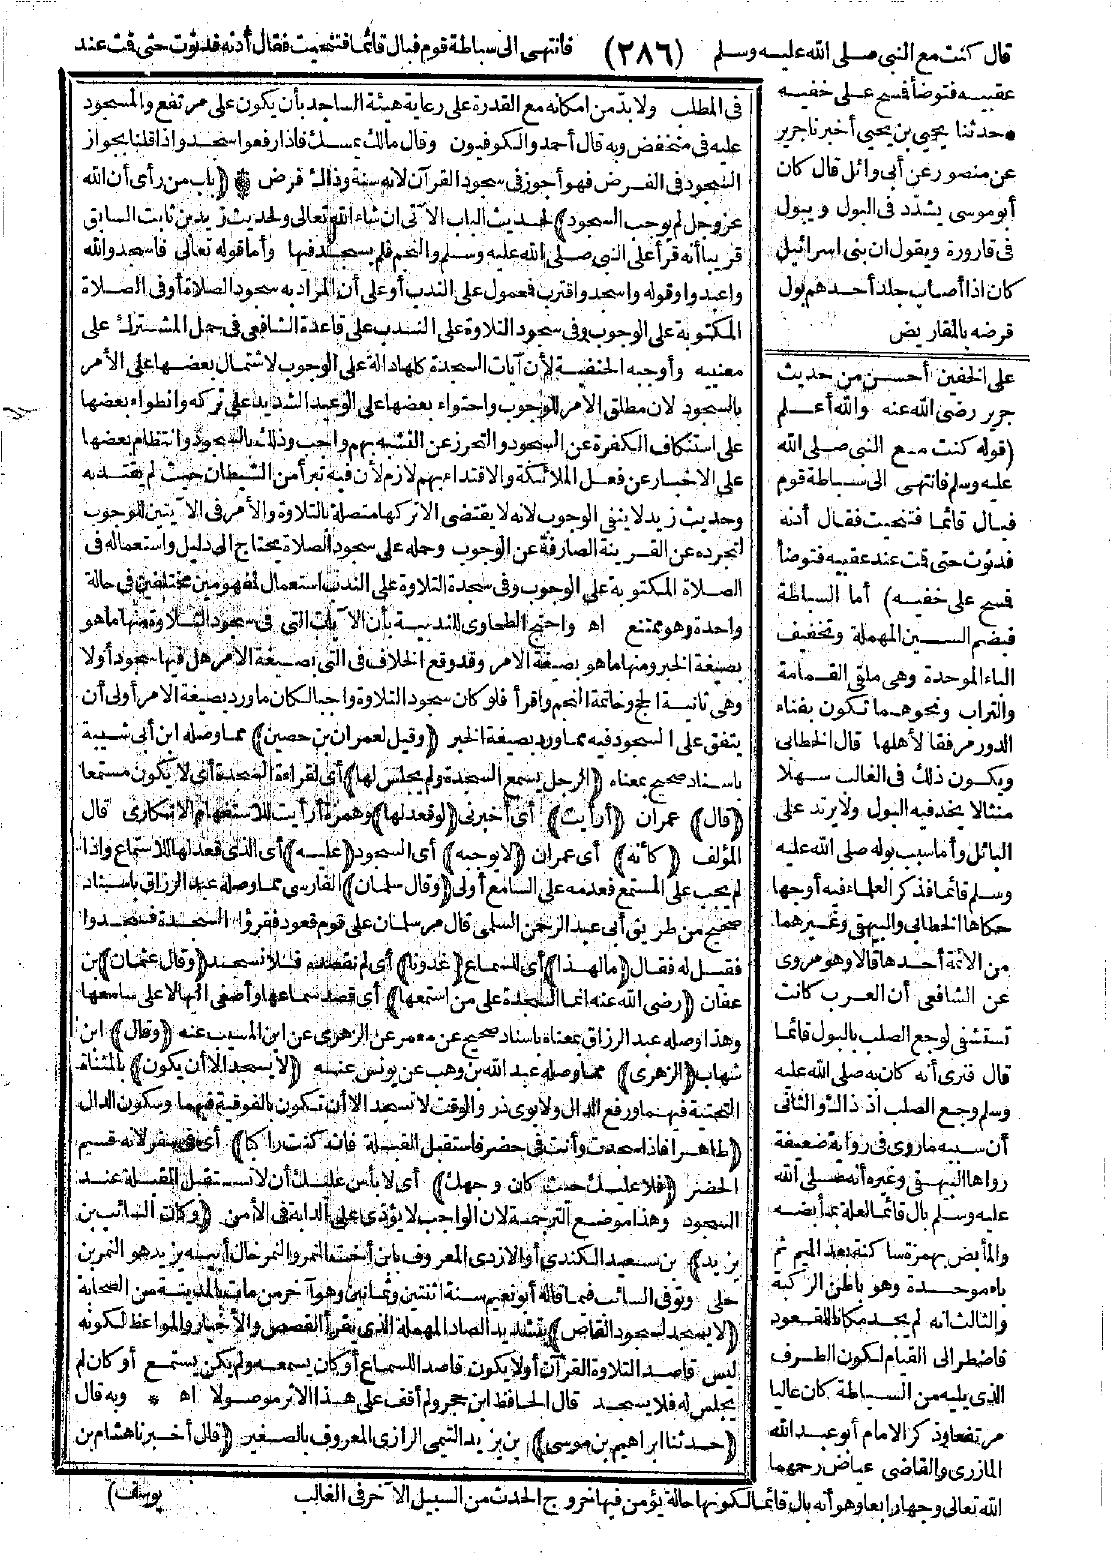 قال كنت مع النبي صلى الله عليه وسلم (٢٨٦) فانتهى الى سباطة قوم فبال قائما فتنحيت فقال أدنه فدنوت حتى قمت عند
عقبيه فتوضأ فمسح على خفيه
* حدثنا يحيى بن يحيى أخبرنا جرير
عن منصور عن أبى وائل قال كان
أبو موسى يشدد فى البول ويبول
فى قارورة ويقول ان بنى اسرائيل
كان اذا أصاب جلد أحدهم بول
قرضه بالمقاريض
على الخفين أحسن من حديث
جرير رضى الله عنه والله أعلم
(قوله كنت مع النبى صلى الله
عليه وسلم فانتهى الى سباطة قوم
فبال قائما فتنحيت فقال أدنه
فدنوت حتى قمت عند عقبيه فتوضأ
فمسح على خفيه) أما السباطة
فبضم السين المهملة وتخفيف
الباء الموحدة وهى ملقى القمامة
والتراب ونحوهما تكون بفناء
الدور مرفقا لأهلها قال الخطابى
ويكون ذلك فى الغالب سهلا
منثالا يخد فيه البول ولا يرتد على
البائل وأما سبب بوله صلى الله عليه
وسلم قائما فذكر العلماء فيه أوجها
حكاها الخطابى والبيهقى وغيرهما
من الأئمة أحدها قالا وهو مروى
عن الشافعى أن العرب كانت
تستشفى لوجع الصلب بالبول قائما
قال فنرى أنه كان به صلى الله عليه
وسلم وجع الصلب اذ ذاك والثانى
أن سببه ما روى فى رواية ضعيفة
رواها البيهقى وغيره أنه صلى الله
عليه وسلم بال قائما لعلة بمأبضه
والمأبض بهمزة ساكنة بعد الميم ثم
باء موحدة وهو باطن الركبة
والثالث انه لم يجد مكانا للقعود
فاضطر الى القيام لكون الطرف
الذى يليه من السباطة كان عاليا
مرتفعا وذكر الامام أبو عبد الله
المازرى والقاضى عياض رحمهما
الله تعالى وجها رابعا وهو أنه بال قائما لكونها حالة يؤمن فيها خروج الحدث من السبيل الآخر فى الغالب
فى المطلب ولا بد من امكانه مع القدرة على رعاية هيئة الساجد بأن يكون على مرتفع والمسجود
عليه فى منخفض وبه قال أحمد والكوفيون وقال مالك يمسك فاذا رفعوا سجد واذا قلنا بجواز
السجود فى الفرض فهو أجوز فى سجود القرآن لأنه سنة وذاك فرض * (باب من رأى أن الله
عز وجل لم يوجب السجود) لحديث الباب الآتى ان شاء الله تعالى ولحديث زيد بن ثابت السابق
قريبا أنه قرأ على النبى صلى الله عليه وسلم والنجم فلم يسجد فيها وأما قوله تعالى فاسجدوا لله
واعبدوا وقوله واسجد واقترب فمحمول على الندب أو على أن المراد به سجود الصلاة أو فى الصلاة
المكتوبة على الوجوب وفى سجود التلاوة على الندب على قاعدة الشافعى فى حمل المشترك على
معنييه وأوجبه الحنفية لأن آيات السجدة كلها دالة على الوجوب لاشتمال بعضها على الأمر
بالسجود لان مطلق الأمر للوجوب واحتواء بعضها على الوعيد الشديد على تركه وانطواء بعضها
على استنكاف الكفرة عن السجود والتحرز عن التشبه بهم واجب وذلك بالسجود وانتظام بعضها
على الاخبار عن فعل الملائكة والاقتداء بهم لازم لأن فيه تبرأ من الشيطان حيث لم يقتد به
وحديث زيد لا ينفى الوجوب لانه لا يقتضى الا تركها متصلة بالتلاوة والأمر فى الآيتين للوجوب
لتجرده عن القرينة الصارفة عن الوجوب وحمله على سجود الصلاة يحتاج الى دليل واستعماله فى
الصلاة المكتوبة على الوجوب وفى سجدة التلاوة على الندب استعمال لمفهومين مختلفين فى حالة
واحدة وهو ممتنع اه واحتج الطحاوى للندبية بأن الآيات التى فى سجود التلاوة منها ما هو
بصيغة الخبر ومنها ما هو بصيغة الامر وقد وقع الخلاف فى التى بصيغة الامر هل فيها سجود أولا
وهى ثانية الحج وخاتمة النجم واقرأ فلو كان سجود التلاوة واجبا لكان ما ورد بصيغة الامر أولى أن
يتفق على السجود فيه مما ورد بصيغة الخبر (وقيل لعمران بن حصين) مما وصله ابن أبى شيبة
باسناد صحيح بمعناه (الرجل يسمع السجدة ولم يجلس لها) أى لقراءة السجدة أى لا يكون مستمعا
(قال) عمران (أرأيت) أى أخبرنى (لو قعد لها) وهمزة أرأيت للاستفهام الانكارى قال
المؤلف (كأنه) أى عمران (لا يوجبه) أى السجود (عليه) أى الذى قعد لها للاستماع واذا
لم يجب على المستمع فعدمه على السامع أولى (وقال سلمان) الفارسى مما وصله عبد الرزاق باسناد
صحيح من طريق أبى عبد الرحمن السلمى قال مر سلمان على قوم قعود فقرؤا السجدة فسجدوا
فقيل له فقال (ما لهذا) أى للسماع (غدونا) أى لم نقصده فلا نسجد (وقال عثمان) بن
عفان (رضى الله عنه انما السجدة على من استمعها) أى قصد سماعها وأصغى اليها لا على سامعها
وهذا وصله عبد الرزاق بمعناه باسناد صحيح عن معمر عن الزهرى عن ابن المسيب عنه (وقال) ابن
شهاب (الزهرى) مما وصله عبد الله بن وهب عن يونس عنه (لا يسجد الا أن يكون) بالمثناة
التحتية فيهما ورفع الدال ولابوى ذر والوقت لا تسجد الا أن تكون بالفوقية فيهما وسكون الدال
(طاهرا فاذا سجدت وأنت فى حضر فاستقبل القبلة فان كنت راكبا) أى فى سفر لانه قسيم
الحضر (فلا عليك حيث كان وجهك) أى لا بأس عليك أن لا تستقبل القبلة عند
السجود وهذا موضع الترجمة لان الواجب لا يؤدى على الدابة فى الأمن (وكان السائب بن
يزيد) بن سعيد الكندى أو الازدى المعروف بابن أخت النمر والنمر خال أبيه يزيد هو النمر بن
جلى وتوفى السائب فيما قاله أبو نعيم سنة اثنتين وثمانين وهو آخر من مات بالمدينة من الصحابة
(لا يسجد لسجود القاص) بتشديد الصاد المهملة الذى يقرأ القصص والأخبار والمواعظ لكونه
ليس قاصدا لتلاوة القرآن أو لا يكون قاصدا للسماع أو كان يسمعه ولم يكن يستمع أو كان لم
يجلس له فلا يسجد قال الحافظ ابن حجر ولم أقف على هذا الاثر موصولا اه * وبه قال
(حدثنا ابراهيم بن موسى) بن يزيد التيمى الرازى المعروف بالصغير (قال أخبرنا هشام بن
يوسف)